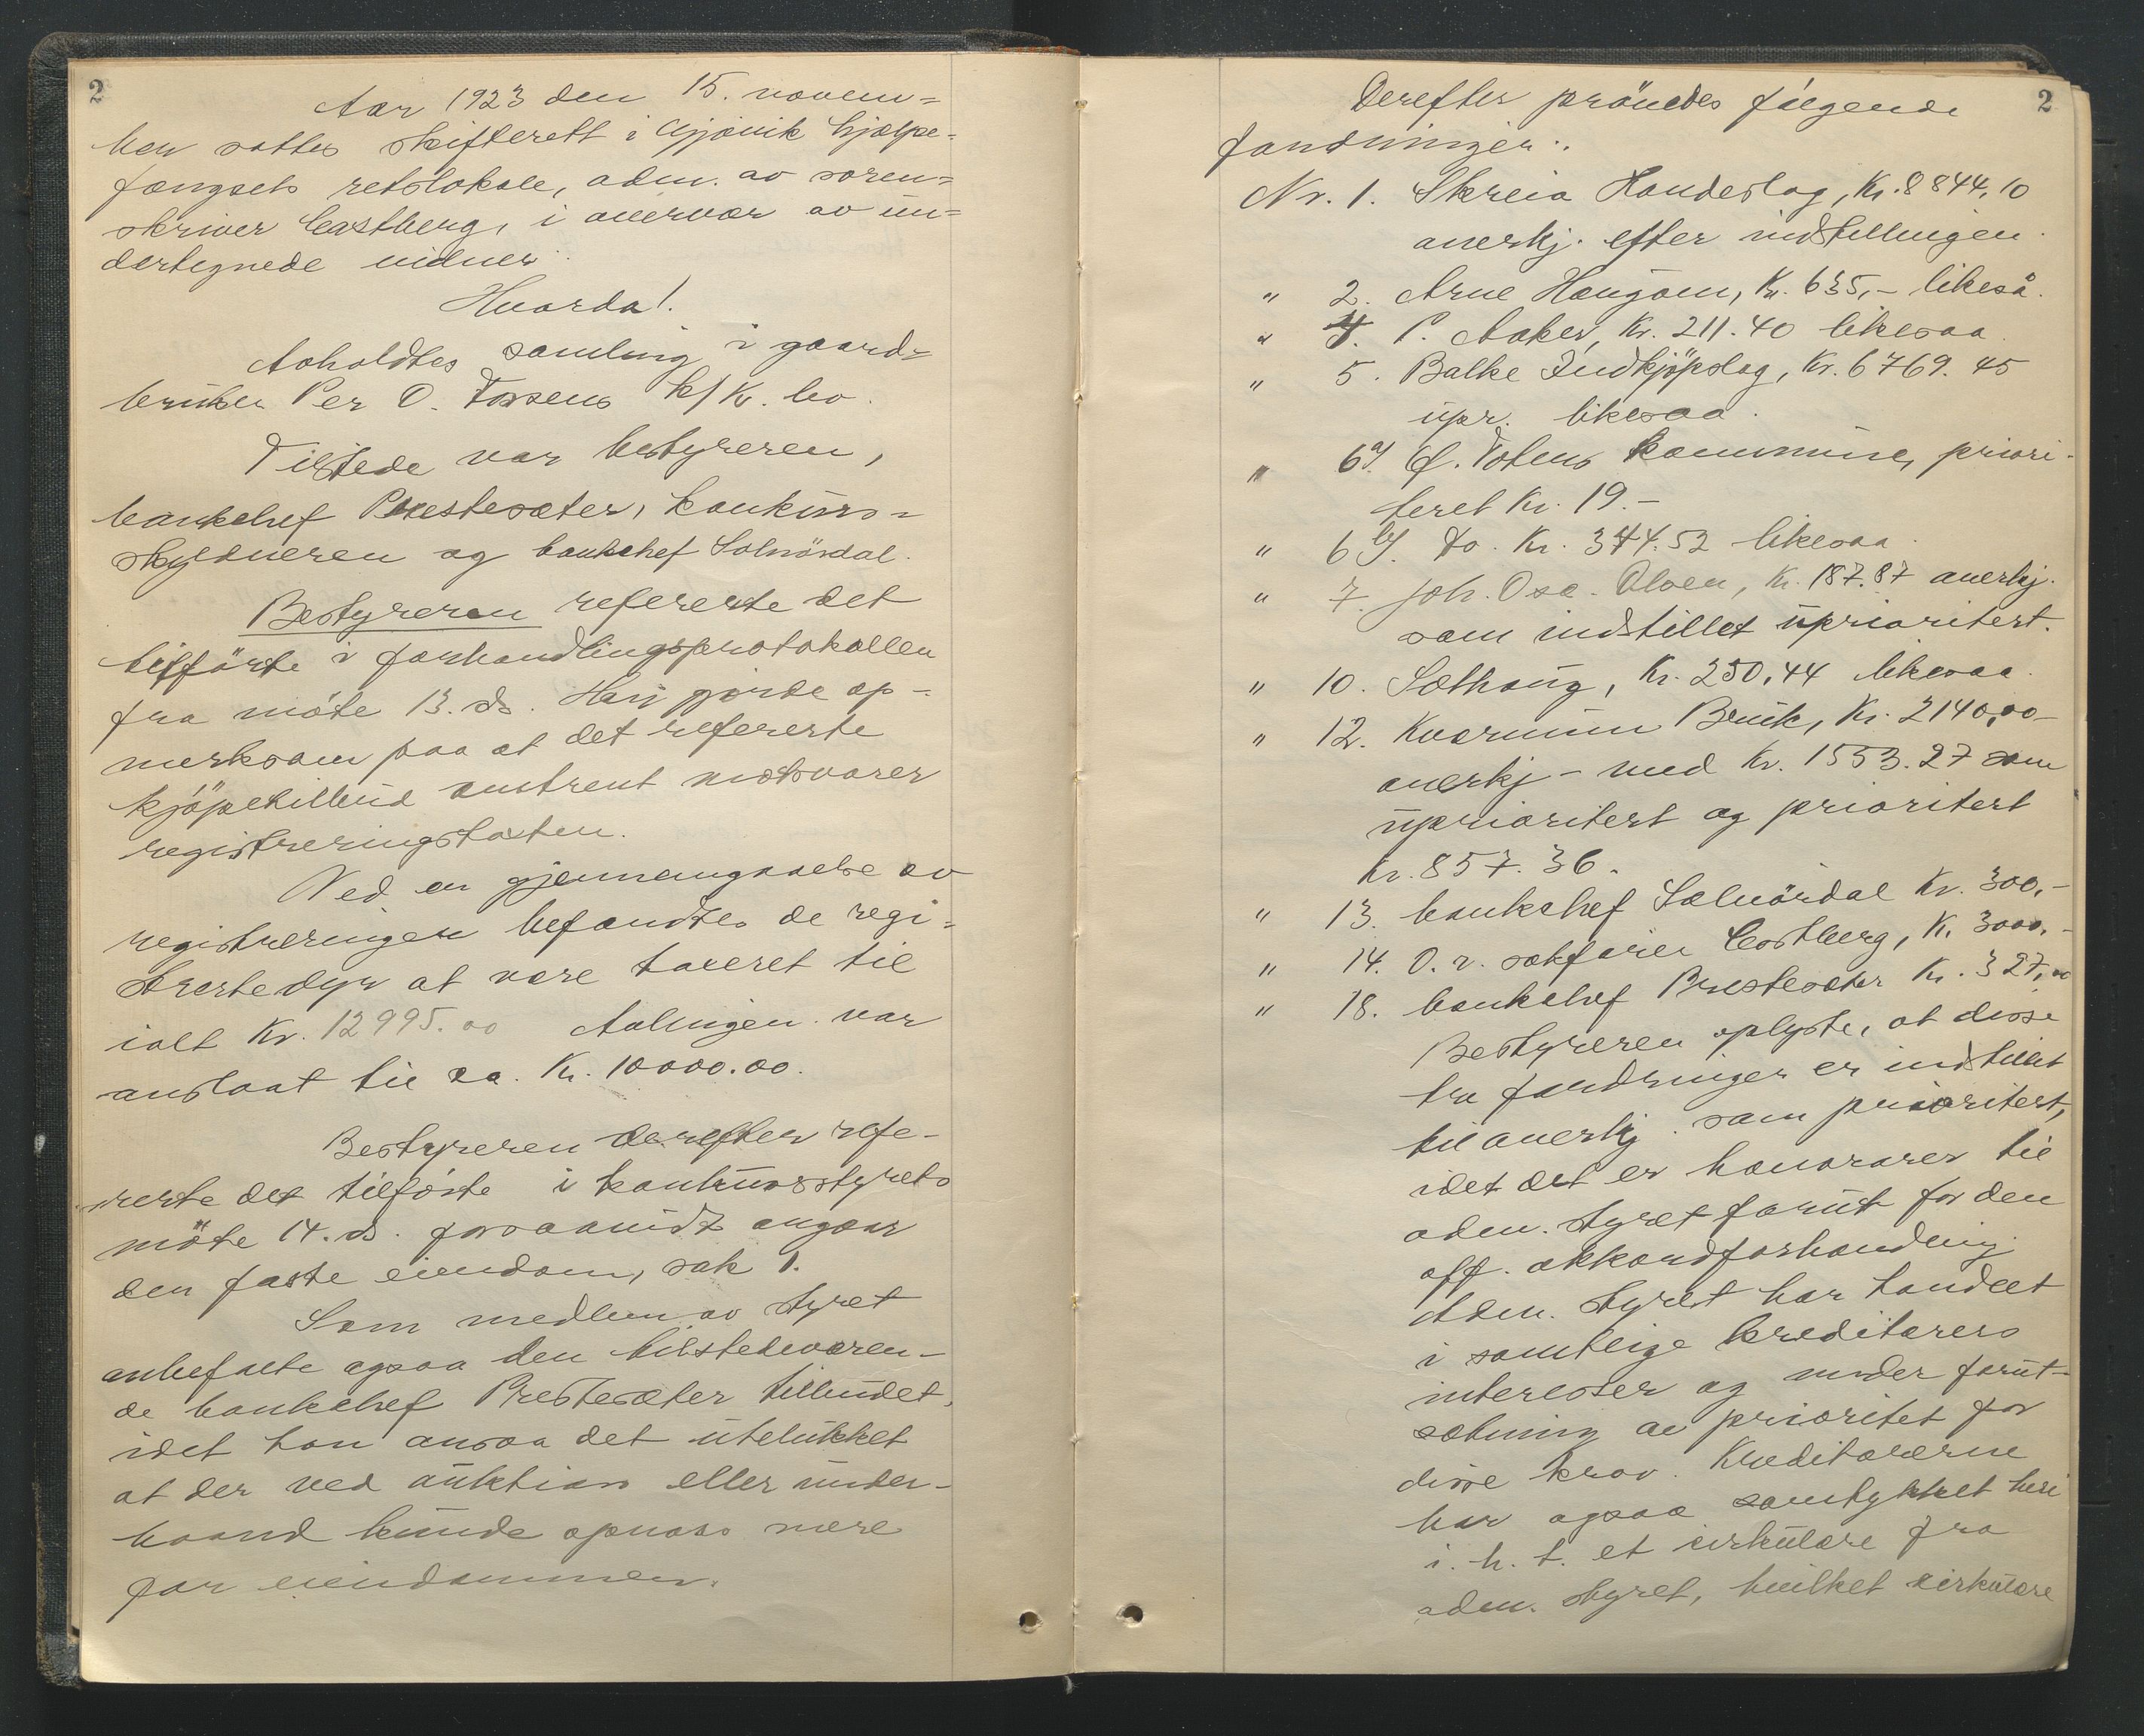 2
Aar 1923 den 15. novem=
ber sattes skifterett i Gjøvik hjælpe=
fængsels retslokale, adm. av soren=
skriver Castberg, i overvær av ün=
dertegnede vidner.
Hvorda!
Avholdtes samling i gaard=
brüker Per O. Fossens k/k. bo.
Tilstede var bestyreren,
bankchef Prestesæter, konkürs=
skyldneren og bankchef Solnørdal.
Bestyreren refererte det
tilførte i forhandlingsprotokollen
fra møte 13. ds. Han gjorde op-
merksom paa at det refererte
kjøpetilbud omtrent motsvarer
registreringstaxten.
Ved en gjennemgaaelse av
registreringen befandtes de regi=
strerte dyr at være taxeret til
ialt Kr. 12995.00 Avlingen var
anslaat til ca. Kr. 10000.00.
Bestyreren derefter refe-
rerte det tilførte i konkürsstyrets
møte 14. ds. forsaavidt angaar
den faste eiendom, sak 1.
Som medlem av styret
anbefalte ogsaa den tilstedeværen-
de bankchef Prestesæter tilbüdet,
idet han ansaa det ütelükket
at der ved aüktion eller ünder-
haand künde opnaas mere
for eiendommen.
Derefter prøvedes følgende 2
fordringer:
Nr. 1. Skreia Handelslag, Kr. 8844,10
anerkj. efter indstillingen.
" 2. Arne Haugom, Kr. 635,- likeså.
" 4. P. Aaker, Kr. 211.40 likesaa.
" 5. Balke Indkjøpslag, Kr. 6769.45
üpr. likesaa.
" 6a). Ø. Totens kommüne, priori-
teret Kr. 19.-
" 6b). Do. Kr. 344.52 likesaa.
" 7. Joh. Osc. Olsen, Kr. 187.87 anerkj.
som indstillet üprioritert.
" 10. Sethaüg, Kr. 250,44 likesaa.
" 12. Kværnüm Brük, Kr. 2140,00
anerkj - med Kr. 1553.27 som
üprioritert og prioritert
Kr. 857.36.
" 13. bankchef Solnørdal Kr. 300,-
" 14. O.r. sakfører Castberg, K. 3000,-
" 18. bankchef Prestesæter Kr. 327,00
Bestyreren oplyste, at disse
tre fordringer er indstillet
til anerkj. som prioritert,
idet det er honorarer til
adm. styret forüt for den
off. akkordforhandling.
Adm. styret har handlet
i samtlige kreditorers
interesser og under forüt-
sætning av prioritet for
disse krav. Kreditorerne
har ogsaa samtykket heri
i. h. t. et cirkülære fra
adm. styret, hvilket cirkülære